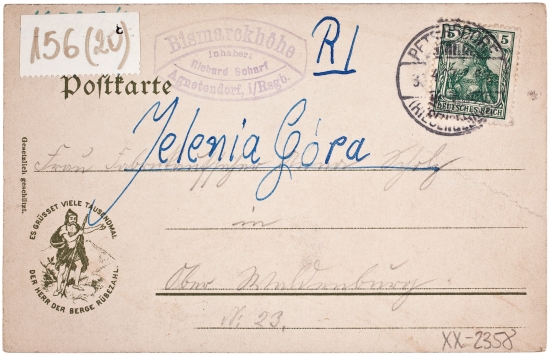 156 (20)
Bismarckhöhe
Inhaber:
Richard Scharf
Agnetendorf, i/Rsgb.
R1
PETERSDORF
(RIESENGEB
5
5
DEUTSCHES REICH
Postkarte
Jelenia Góra
Frau
in
Ober Waldenburg
N: 23.
Gesetzlich geschützt.
ES GRÜSSET VIELE TAUSENDMAL
DER HERR DER BERGE RÜBEZAHL.
XX-2358